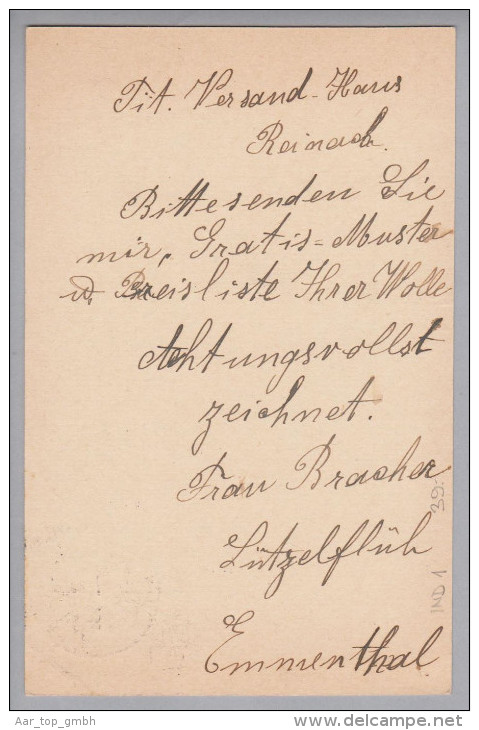 Tit. Versand-Haus
Reinach.
Bitte senden Sie
mir, Gratis=Muster
u. Preisliste Ihrer Wolle
Achtungsvollst
zeichnet.
Frau Bracher
Lützelflüh
Emmenthal.
39.-
IND 1
Aar_top_gmbh
www.delcampe.net